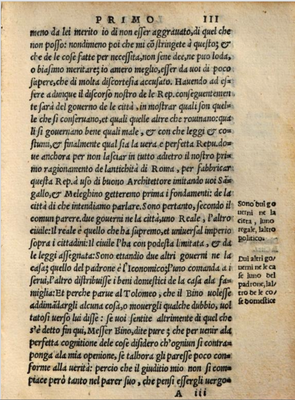 PRIMO III
meno da lei merito io di non esser aggrauato, di quel che
non posso: nondimeno poi che mi cõstringete à questo; &
che de le cose fatte per necessità, non sene dee, ne puo loda,
o biasimo meritare; io amero meglio, esser da uoi di poco
sapere, che di molta discortesia accusato. Hauendo ad es-
sere adunque il discorso nostro de le Rep. conseguentemen
te sarà del gouerno de le città, in mostrar quali son quel-
le che si conseruano, et quali quelle altre che rouinano: qua
li si gouernano bene quali male, & con che leggi & co-
stumi, & finalmente qual sia la uera e perfetta Repu. do-
ue anchora per non lasciar in tutto adietro il nostro pri-
mo ragionamento de lantichità di Roma, per fabbricar
questa Rep. ad uso di buono Architettore imitando uoi San
gallo, & Meleghino getteremo prima i fondamenti: de la
città di che intendiamo parlare. Sono pertanto, secondo il
comun parere, due gouerni ne la città, uno Reale, l'altro
ciuile: Il reale è quello che ha supremo, et uniuersal imperio
sopra i cittadini: Il ciuile l'ha con podestà limitata, & da
le leggi assegnata: Sono ettandio due altri gouerni ne la
casa; quello del padrone è l'Iconomico; l'uno comanda a i
serui, l'altro distribuisce i beni domestici de la casa ala fa-
miglia: Et perche parue al Tolomeo, che il Bino uolesse
addimãdargli alcuna cosa, o mouergli qualche dubbio, uol
tatosi uerso lui disse: se uoi sentite altrimente di quel che
s'è detto fin quì, Messer Bino, dite pure; che per uenir ala
perfetta cognitione dele cose disidero ch'ogniun si contra-
ponga ala mia openione, se talhora gli paresse poco con-
forme alla uerità: percio che il giuditio mio non si com-
piace però tanto nel parer suo, che pensi essergli uergo-
A iii
Sono doi go
uerni ne la
citta, luno
regale, laltro
politico.
Dui altri go
uerni ne la
casa luno nel
padrone, lal
tro de le cose
domestice